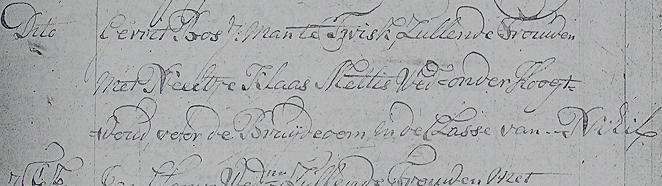 Dito Gerrit Bos J: Man te Twisk Zullende Trouwen
Met Neeltje Klaas Mettis Wed= onder Hoogt=
woud voor de Bruydegom In de Classe van Nihil
Zullende Trouwen Met